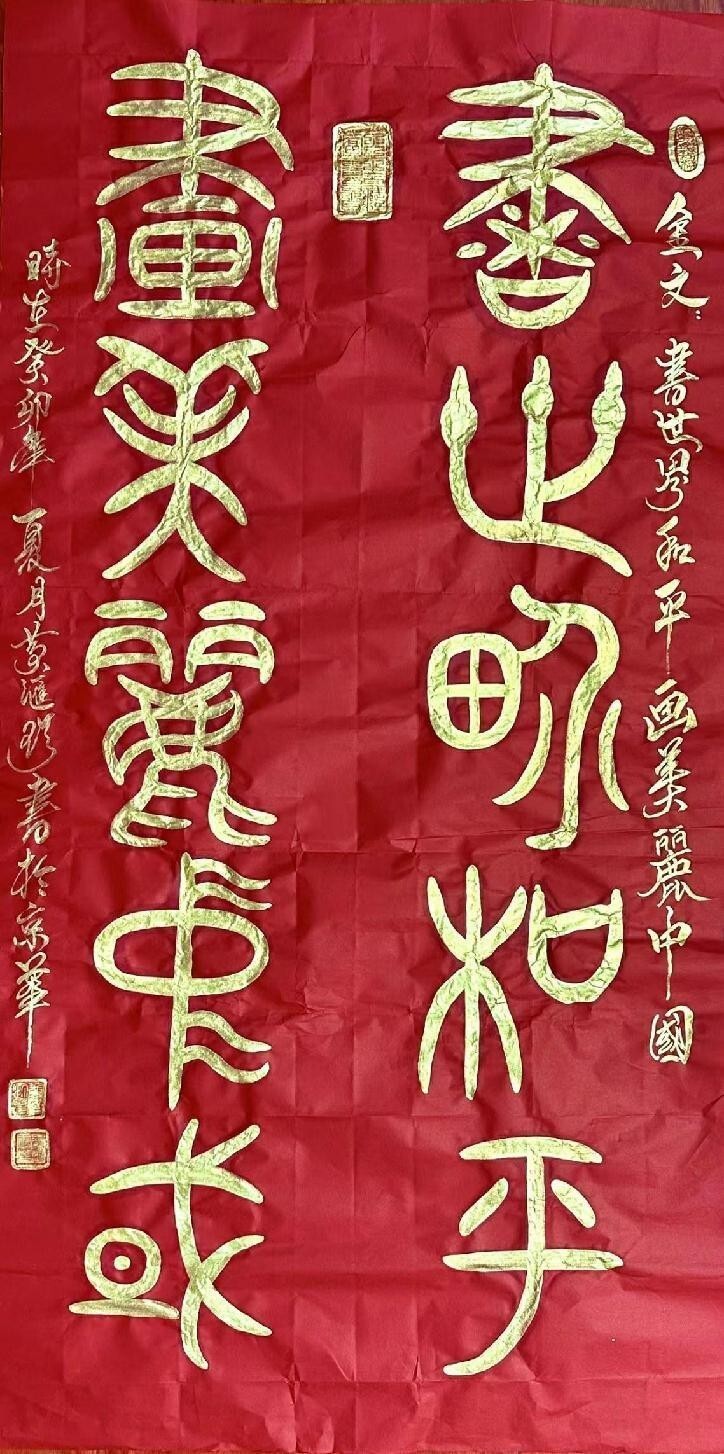 金文：書世界和平画美麗中國
書世界和平
畫美麗中國
時在癸卯年夏月黄滙書於京華